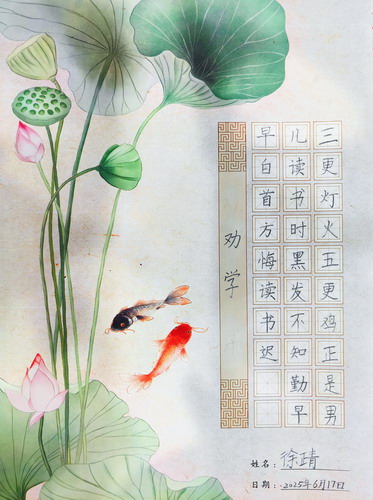 三更灯火五更鸡正是男
儿读书时黑发不知勤早
早白首方悔读书迟
劝学
姓名：徐靖
日期：2025年6月17日